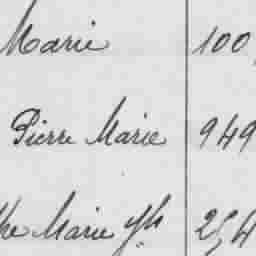 Marie 100
Pierre Marie 949
Marie Jh 254